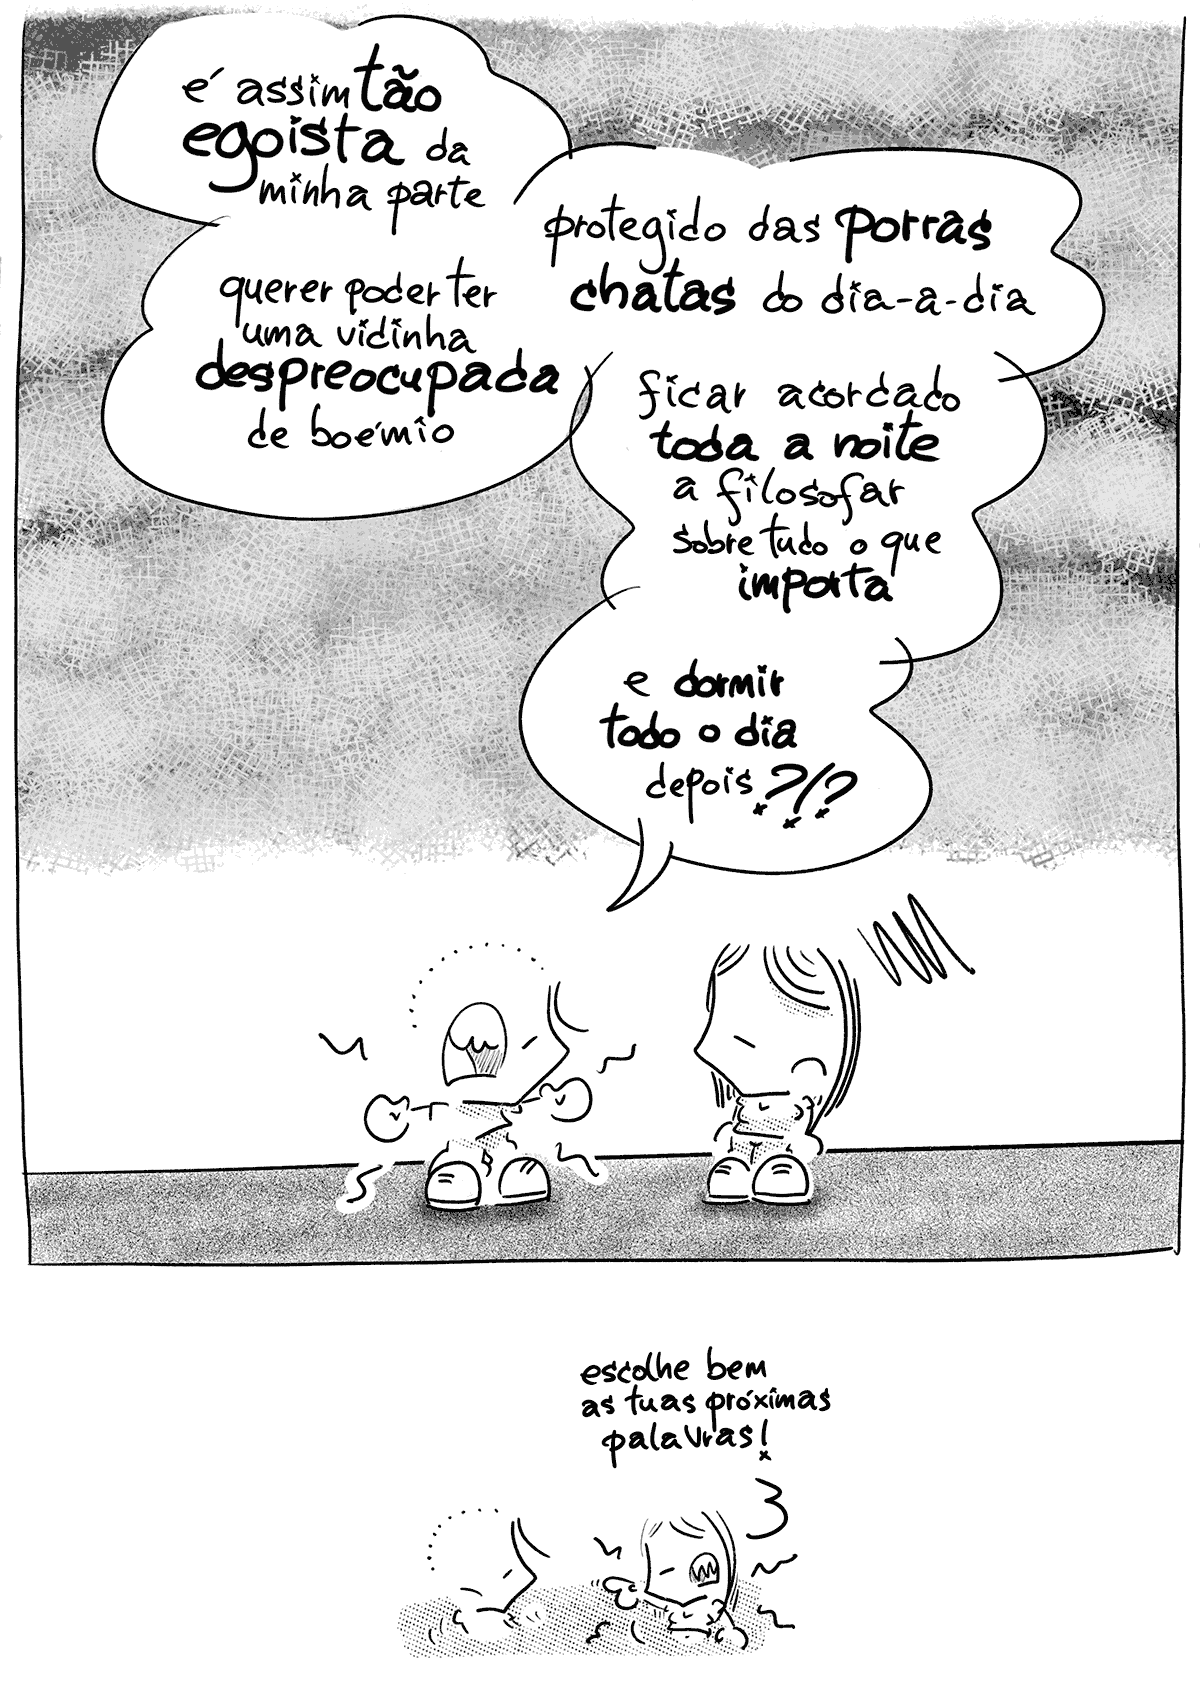 é assim tão
egoista da
minha parte
querer poder ter
uma vidinha
despreocupada
de boémio
protegido das porras
chatas do dia-a-dia
ficar acordado
toda a noite
a filosofar
sobre tudo o que
importa
e dormir
todo o dia
depois ?!?
escolhe bem
as tuas próximas
palavras!